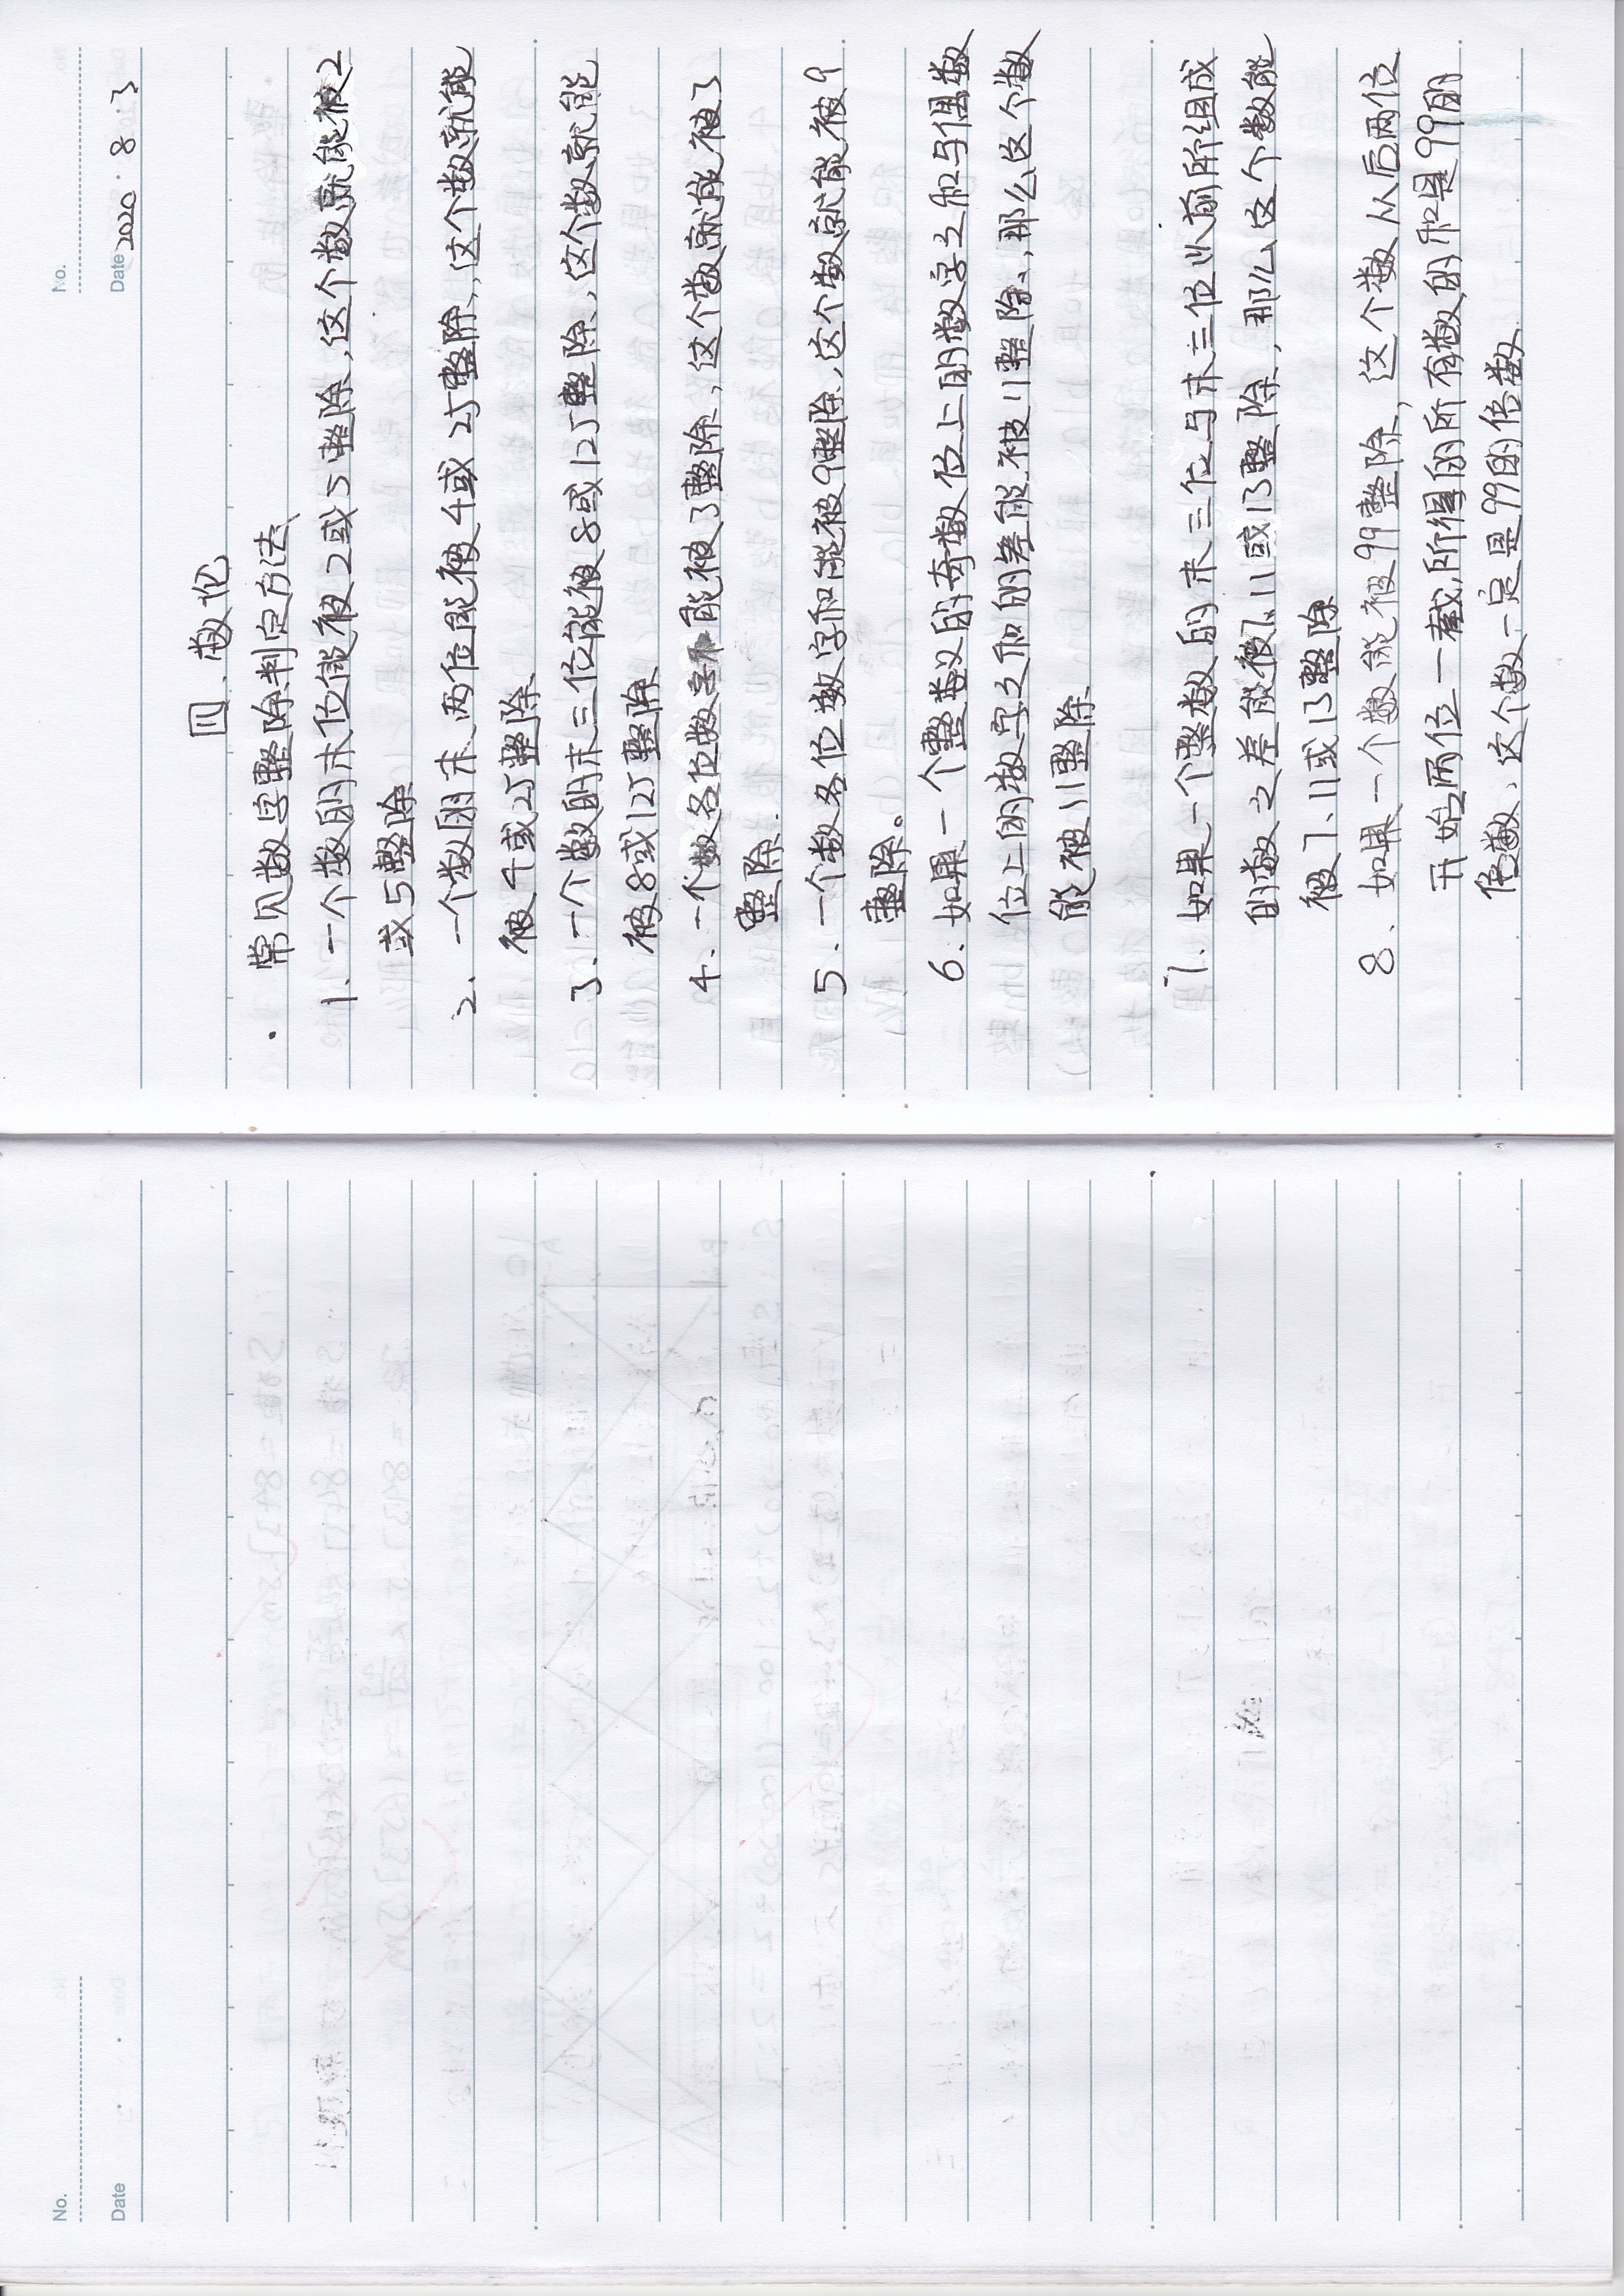 No.
Date 2020 · 8 · 3
四、数论
· 常见数字整除判定方法
1. 一个数的末位能被2或5整除,这个数就能被2
或5整除
2. 一个数的末两位能被4或25整除,这个数就能
被4或25整除
3. 一个数的末三位能被8或125整除,这个数就能
被8或125整除
4. 一个数各位数字和能被3整除,这个数就能被3
整除.
5. 一个数各位数字和能被9整除,这个数就能被9
整除。
6. 如果一个整数的奇数位上的数字之和与偶数
位上的数字之和的差能被11整除,那么这个数
能被11整除
7. 如果一个整数的末三位与末三位以前所组成
的数之差能被7、11或13整除,那么这个数能
被7、11或13整除
8、如果一个数能被99整除,这个数从后两位
开始两位一截所得的所有数的和是99的
倍数、这个数一定是99的倍数.
No.
Date